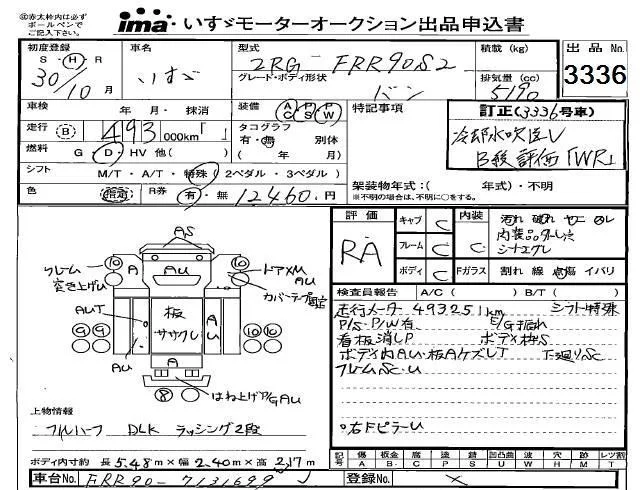 ㊟赤太枠内は必ず
ボールペンで
ご記入下さい。
ima いすゞモーターオークション出品申込書
初度登録 S・H・R 30年 10月
車名 いすゞ
型式 2RG-FRR90S2
グレード・ボディ形状 バン
積載 (kg)
排気量 (cc) 5190
出品No.
3336
車検 年・月・抹消
装備 AC PS PW
特記事項
走行 B 493 000km「 」
タコグラフ 有・無 別体 ( 年 月)
燃料 G・D・HV 他( )
シフト M/T・A/T・特殊(2ペダル・3ペダル)
色 指定 R券 有・無 12460円
訂正(3336号車)
冷却水吹返V
B級評価「WR」
架装物年式:( 年式)・不明
※不明の場合は、不明に○をする。
評価 RA
キャブ C
フレーム C
ボディ C
内装 C
汚れ 破れ ヤニ スレ
シートエグレ
Fガラス 割れ 線 点傷 イバリ
検査員報告 A/C ( ) B/T ( )
走行メーター 493251km シフト特殊
P/S・P/W有 E/G振れ
看板消しP ボデー枠S
ボデー内AU・板Aケズレ T 下廻りSC
フレームSC・U
右FピラーU
AS
フレーム
突き上げU
A
AU
ドアXM
AU
カバーテープ固定
10
10
AUT
板
ササクレ
AU
9 9
10 10
AU
A
AU
8
はね上げP/G AU
上物情報
フルハーフ DLK ラッシング2段
ボディ内寸約 長5.48m×幅2.40m×高2.17m
車台No. FRR90-7131699
記号 傷 A 凹 B 錆 C 腐 C 塗 P 鯖 S 凹凸曲 U 波 W 穴 H 交 X 換 M 欠 T レツ割